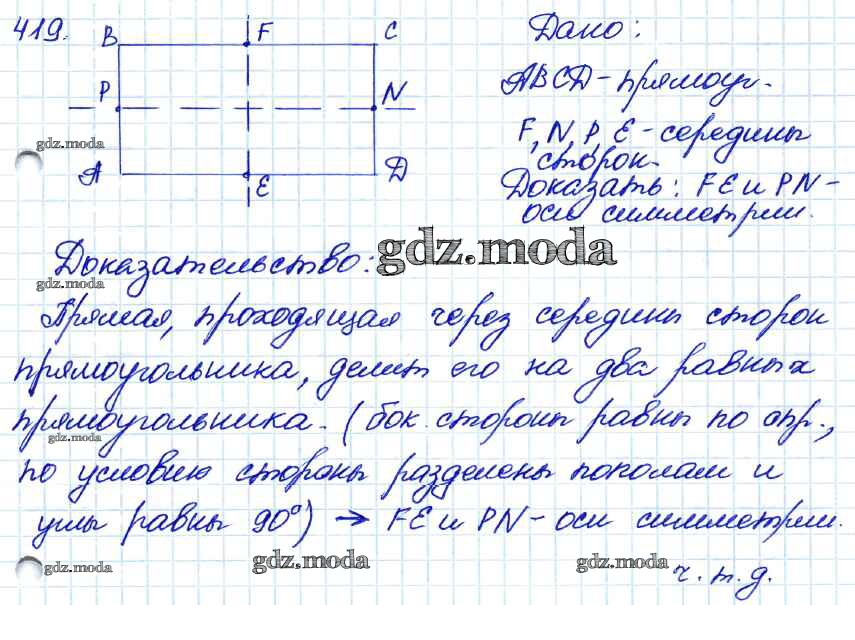 419.
B F C
P N
A E D
Дано:
ABCD - прямоуг.
F, N, P, E - середины
сторон.
Доказать: FE и PN -
оси симметрии.
gdz.moda
Доказательство:
gdz.moda
gdz.moda
Прямая, проходящая через середины сторон
прямоугольника, делит его на два равных
прямоугольника. (бок. стороны равны по опр.,
gdz.moda
по условию стороны разделены пополам и
углы равны 90°) → FE и PN - оси симметрии.
gdz.moda
gdz.moda
gdz.moda
ч.т.д.